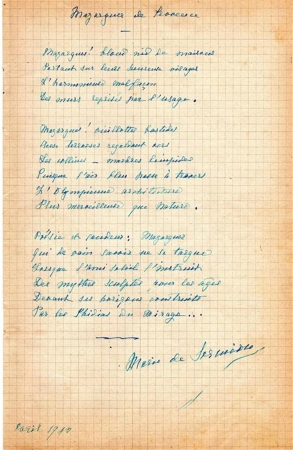 Mazargues de Provence
Mazargues! blond nid de maisons
Portant sur leurs heureux visages
L'harmonieuse malfaçon
Des murs reprisés par l'usage.
Mazargues! bastides
Aux terrasses regardant vers
Des collines - marbres limpides
Puisque l'air bleu passe à travers
L'Olympienne architecture
Plus merveilleuse que Nature.
Poésie et candeur: Mazargues
Qui de vain savoir ne se targue
Lorsque l'ami soleil l'instruit
Des mythes sculptés sous les âges
Devant ses horizons construits
Par les Phidias du Mirage...
de
Avril 19